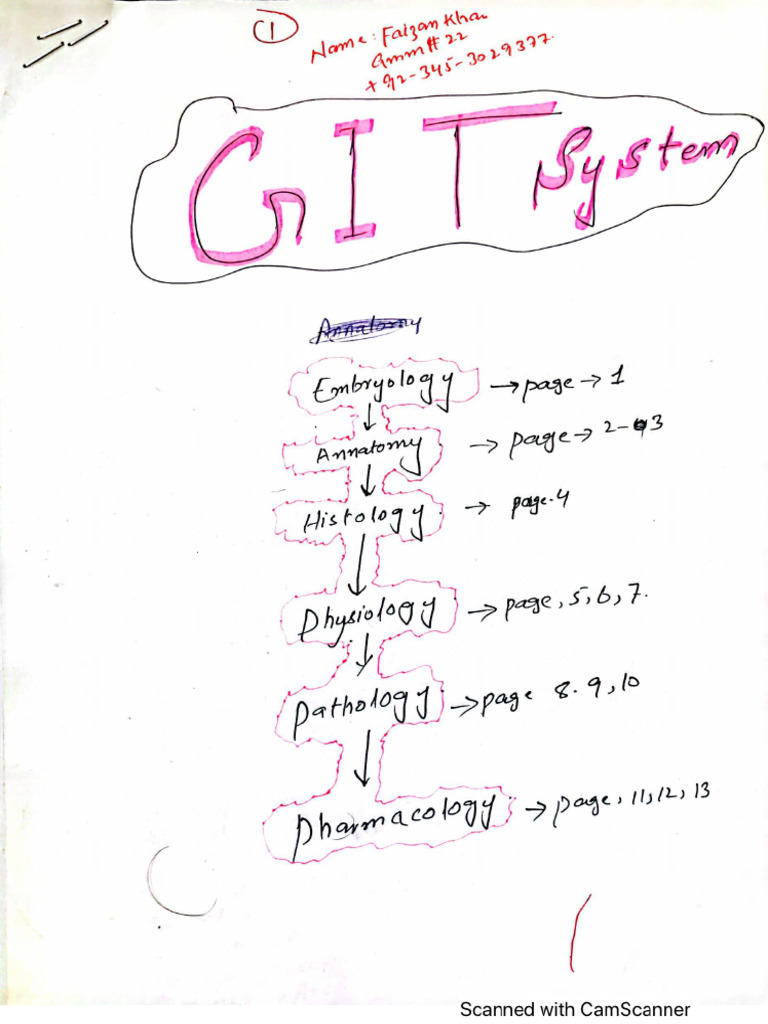 1
Name: Faizan Khan
Gmm # 22
+92-345-3029377
GIT System
Annatomy
Embryology → page → 1
Annatomy → page → 2-3
Histology → page. 4
Physiology → page, 5, 6, 7.
Pathology → page 8. 9, 10
Pharmacology → page, 11, 12, 13
Scanned with CamScanner